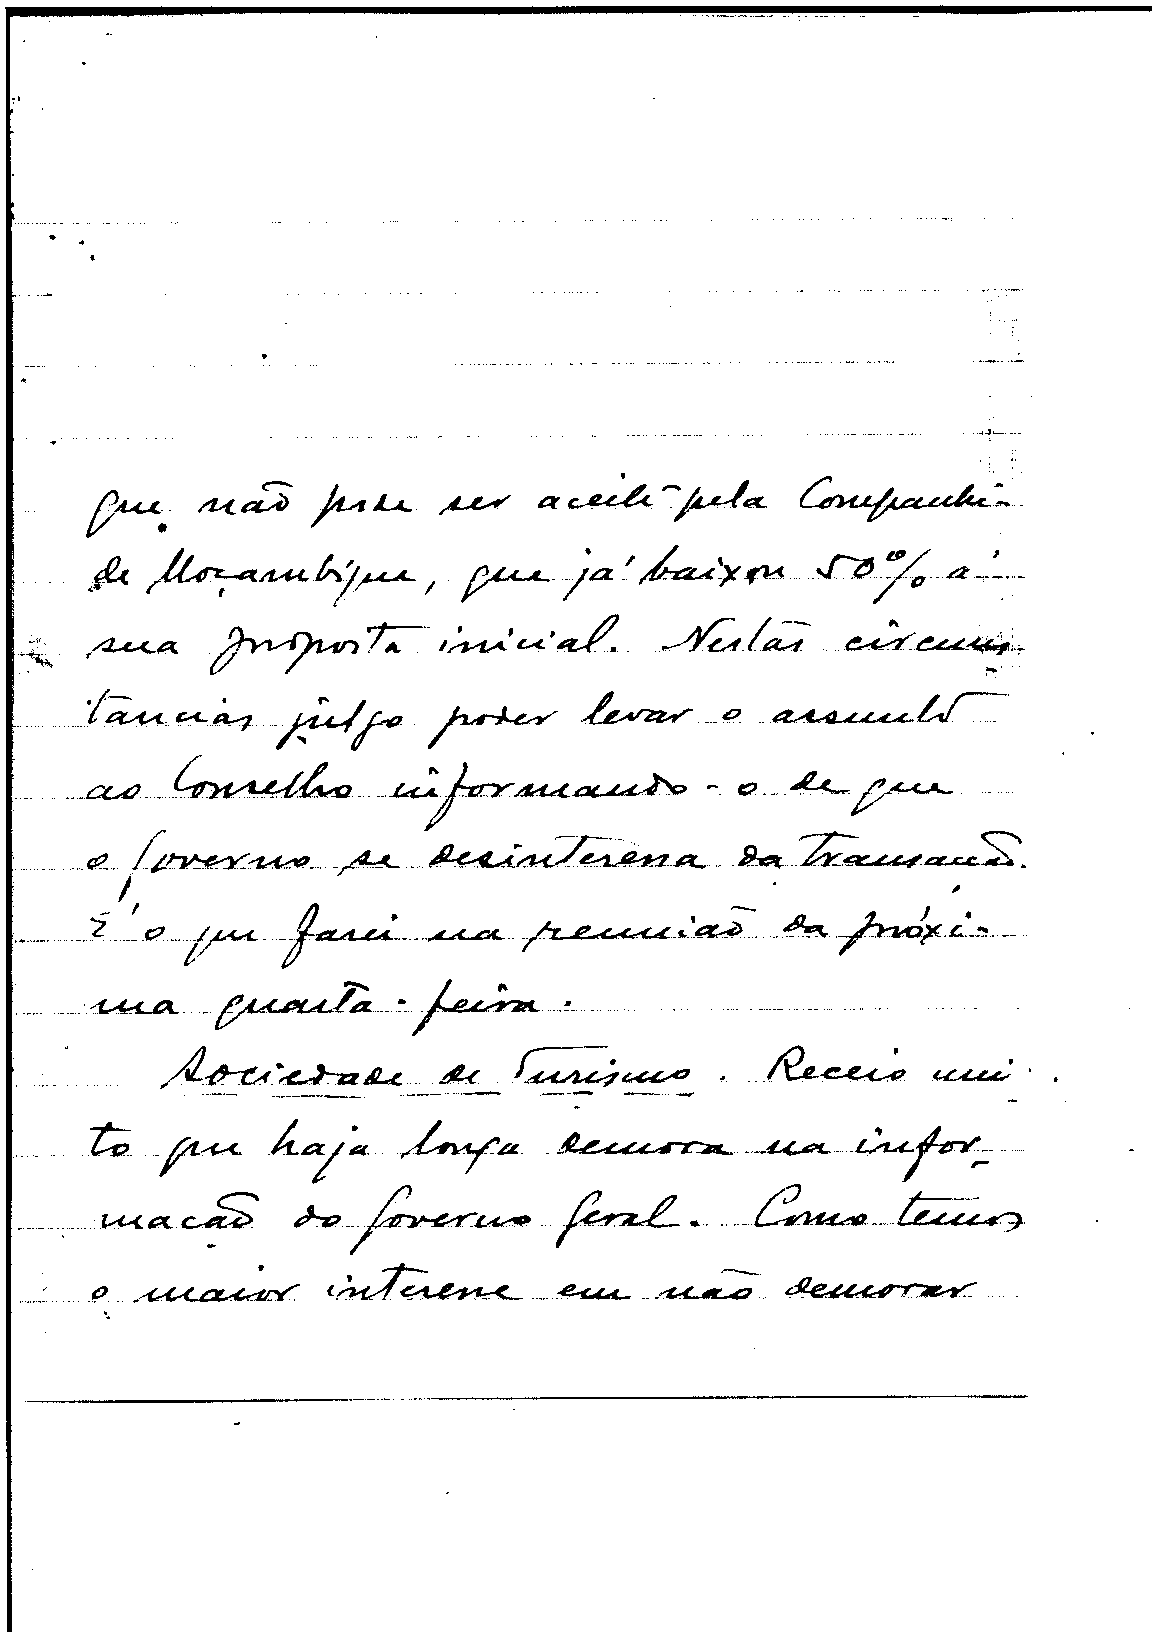 que não pode ser aceite pela Companhi-
de Moçambique, que já baixou 50% á
sua proposta inicial. Nestas circums-
tancias julgo poder levar o assunto
ao Conselho informando-o de que
o Governo se desinteressa da transacão.
É o que farei na reunião da próxi-
ma quarta-feira.
Sociedade de Turismo. Receio mui
to que haja longa demora na infor-
mação do Governo Geral. Como temos
o maior interesse em não demorar